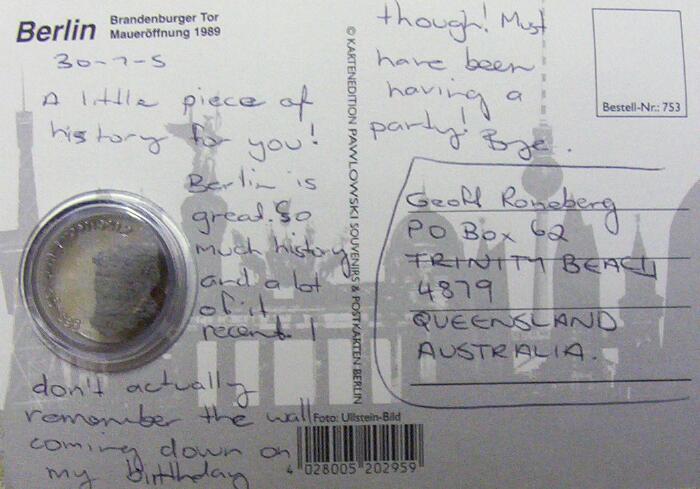 Berlin
Brandenburger Tor
Maueröffnung 1989
30-7-5
A little piece of
history for you!
Berlin is
great. So
much history
and a lot
of it
recent. I
don't actually
remember the wall
coming down on
my birthday
though! Must
have been
having a
party! Bye.
© KARTENEDITION PAWLOWSKI SOUVENIRS & POSTKARTEN BERLIN
Bestell-Nr.: 753
Geoff Roneberg
PO Box 62
TRINITY BEACH
4879
QUEENSLAND
AUSTRALIA.
Foto: Ullstein-Bild
4 028005 202959